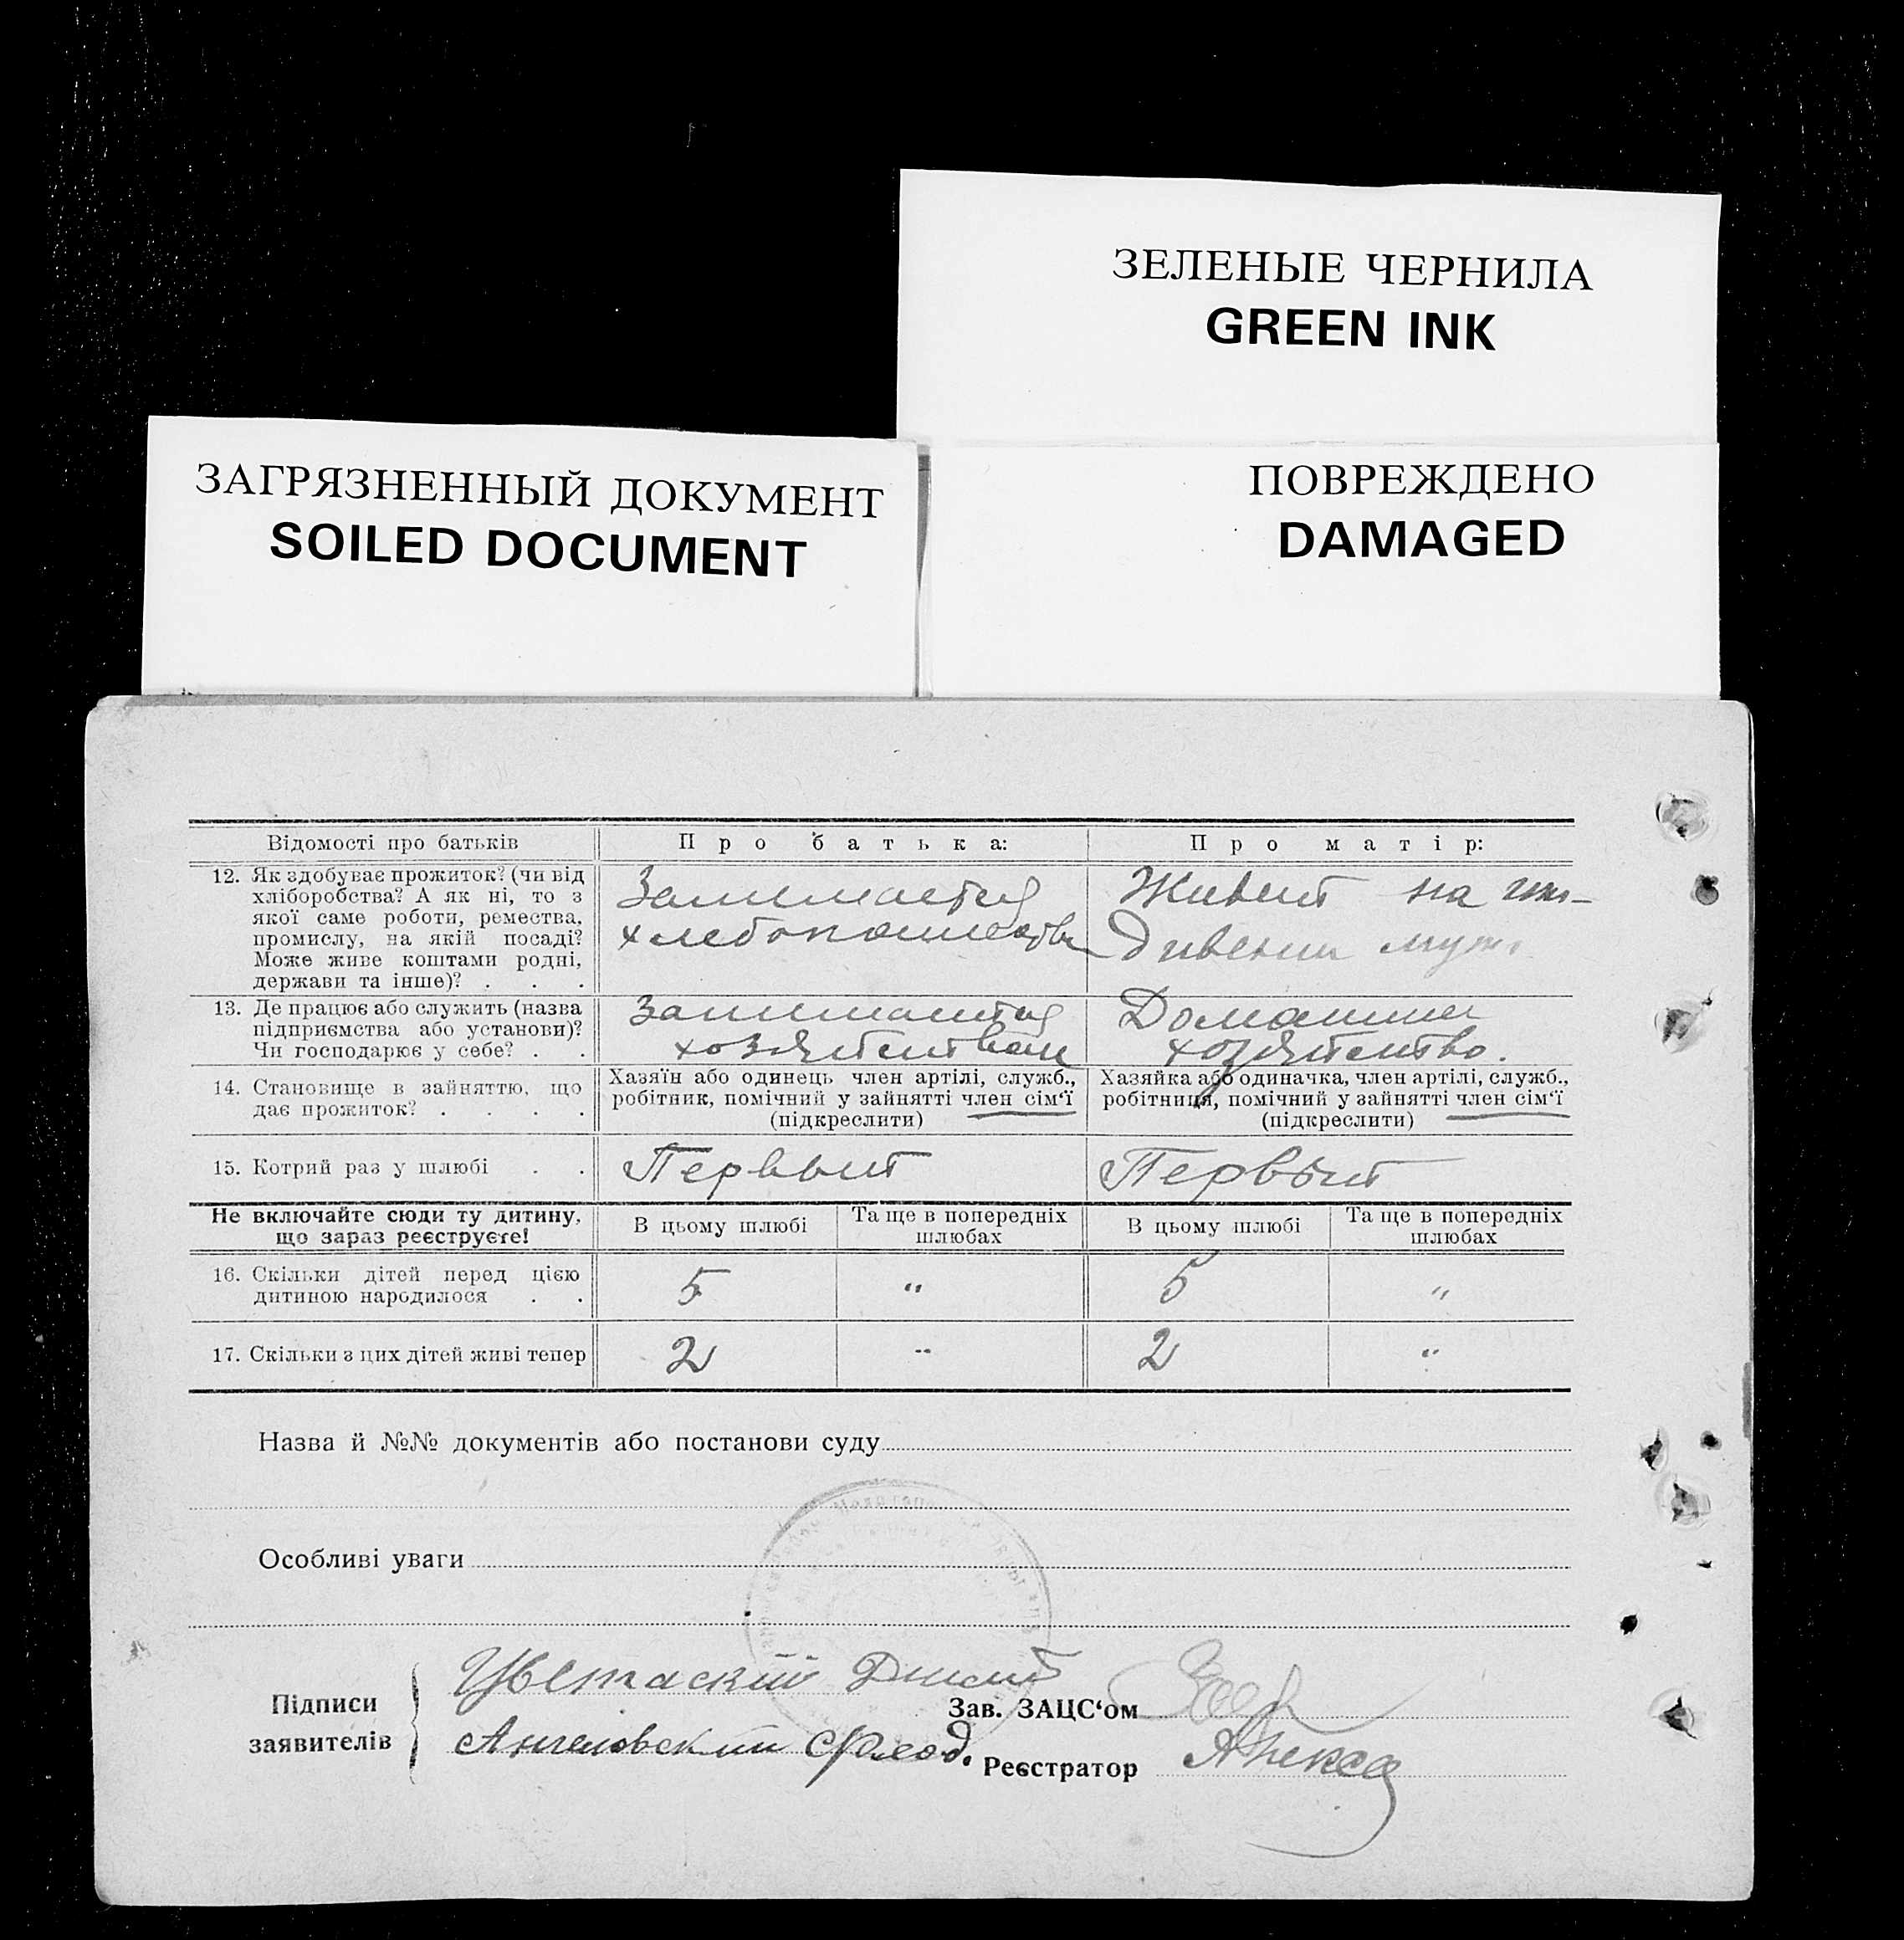 ЗЕЛЕНЫЕ ЧЕРНИЛА
GREEN INK
ЗАГРЯЗНЕННЫЙ ДОКУМЕНТ
SOILED DOCUMENT
ПОВРЕЖДЕНО
DAMAGED
Відомості про батьків
Про батька:
Про матір:
12. Як здобуває прожиток? (чи від
хліборобства? А як ні, то з
якої саме роботи, ремества,
промислу, на якій посаді?
Може живе коштами родні,
держави та інше)? . . .
Занимается
хлебопашеством
Живет на иж-
дивении мужа
13. Де працює або служить (назва
підприємства або установи)?
Чи господарює у себе? . .
Занимается
хозяйством
Домашнее
хозяйство.
14. Становище в зайняттю, що
дає прожиток? . . . .
Хазяїн або одинець член артілі, служб.,
робітник, помічний у зайнятті член сім‘ї
(підкреслити)
Хазяйка або одиначка, член артілі, служб.,
робітниця, помічний у зайнятті член сім‘ї
(підкреслити)
15. Котрий раз у шлюбі . .
Первый
Первый
Не включайте сюди ту дитину,
що зараз реєструєте!
В цьому шлюбі
Та ще в попередніх
шлюбах
В цьому шлюбі
Та ще в попередніх
шлюбах
16. Скільки дітей перед цією
дитиною народилося . .
5
"
5
"
17. Скільки з цих дітей живі тепер
2
"
2
"
Назва й №№ документів або постанови суду
Особливі уваги
Підписи
заявителів
Зав. ЗАЦС‘ом
Реєстратор